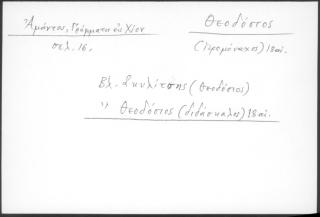 Ἀμάντος, Γράμματα εἰς Χίον
σελ. 16.
Θεοδόσιος
(ἱερομόναχος) 18 αἰ.
Βλ. Σκυλίτσης (Θεοδόσιος)
" Θεοδόσιος (διδάσκαλος) 18 αἰ.